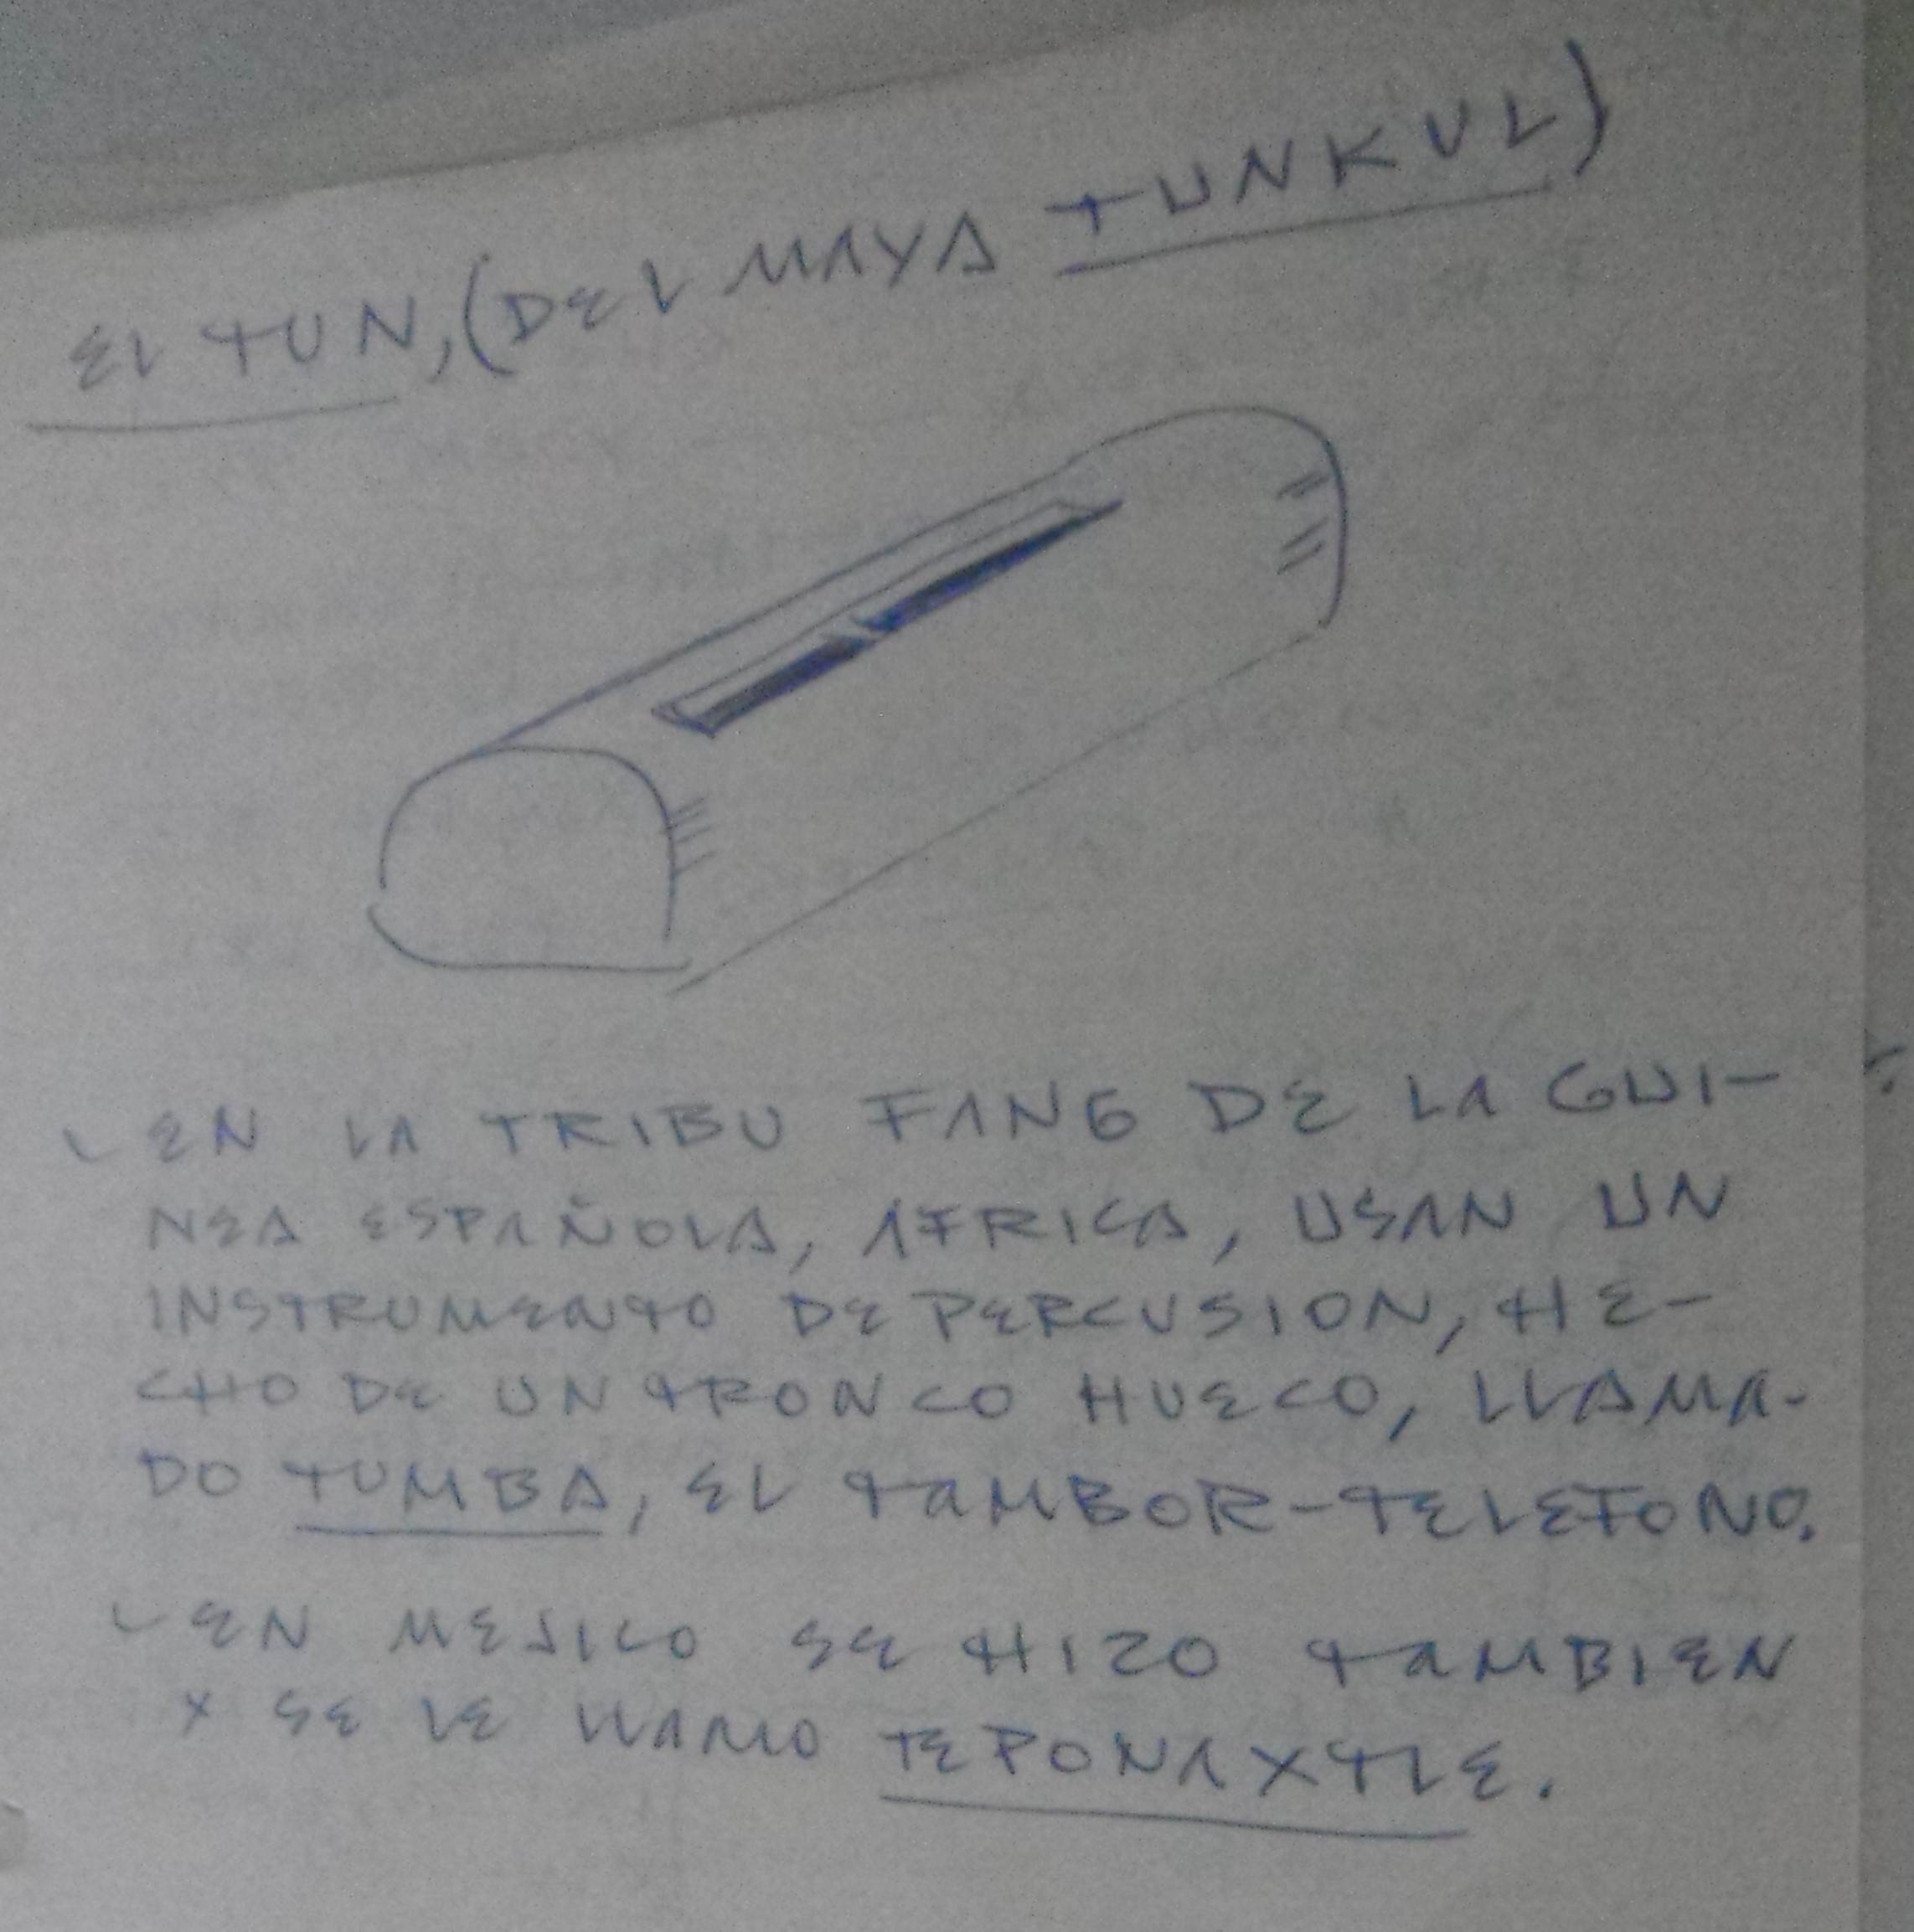 EL TUN, (DEL MAYA TUNKUL)
EN LA TRIBU FANG DE LA GUI-
NEA ESPAÑOLA, AFRICA, USAN UN
INSTRUMENTO DE PERCUSION, HE-
CHO DE UN TRONCO HUECO, LLAMA-
DO TUMBA, EL TAMBOR-TELEFONO.
EN MEJICO SE HIZO TAMBIEN
Y SE LE LLAMO TEPONAXTLE.